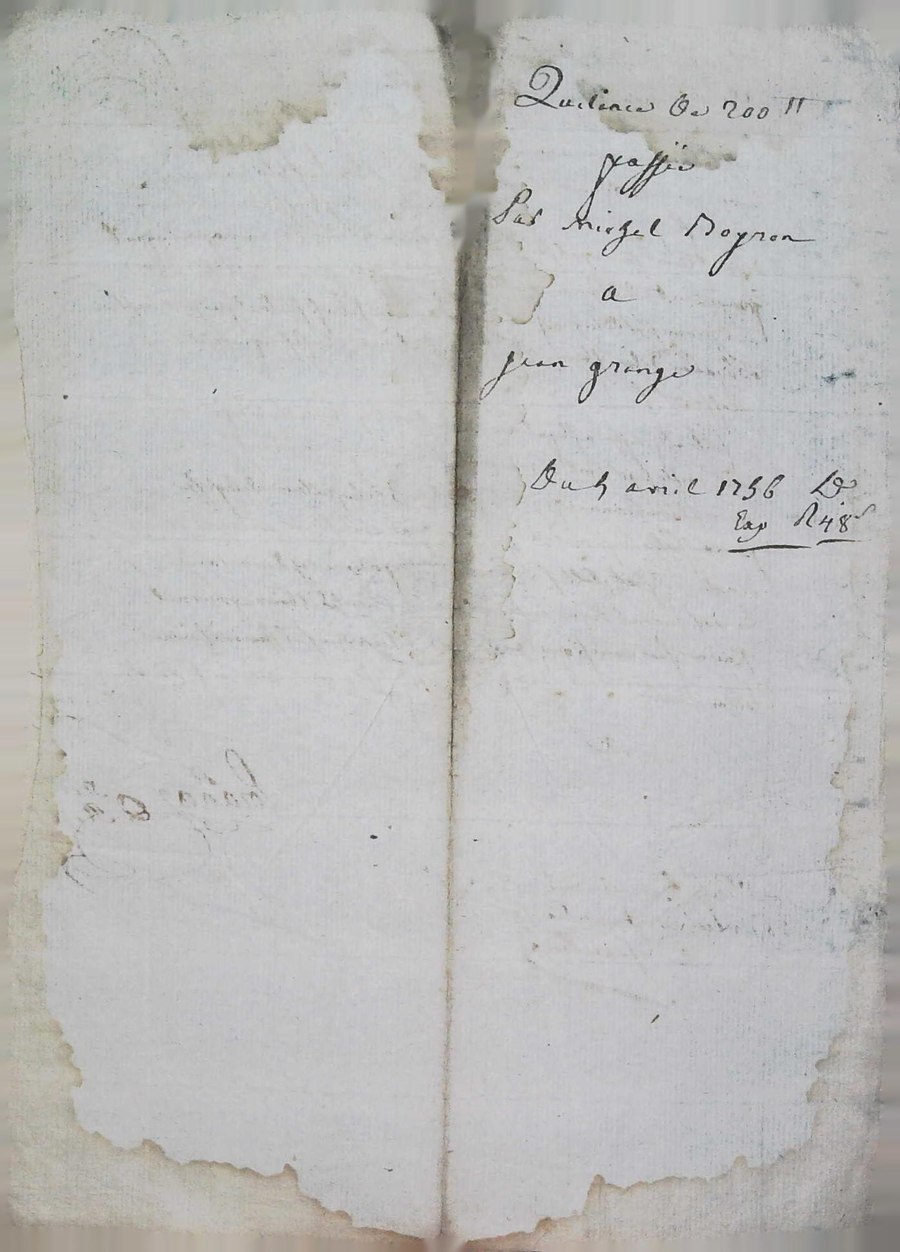 Quittance de 200 ₶
passée
Par michel Doyron
a
jean grange
Du 5 avril 1756
Exp 48ˢ